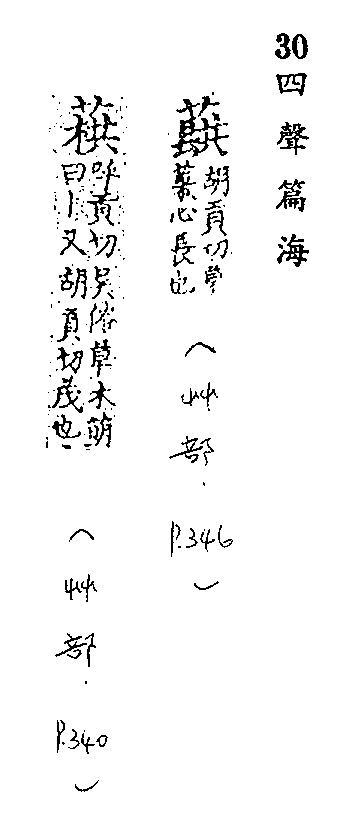 30四聲篇海
蕻 胡貢切草
菜心長也
(艸部.P.346)
呼貢切吳俗草木萌
曰丨又胡貢切茂也
(艸部.P.340)